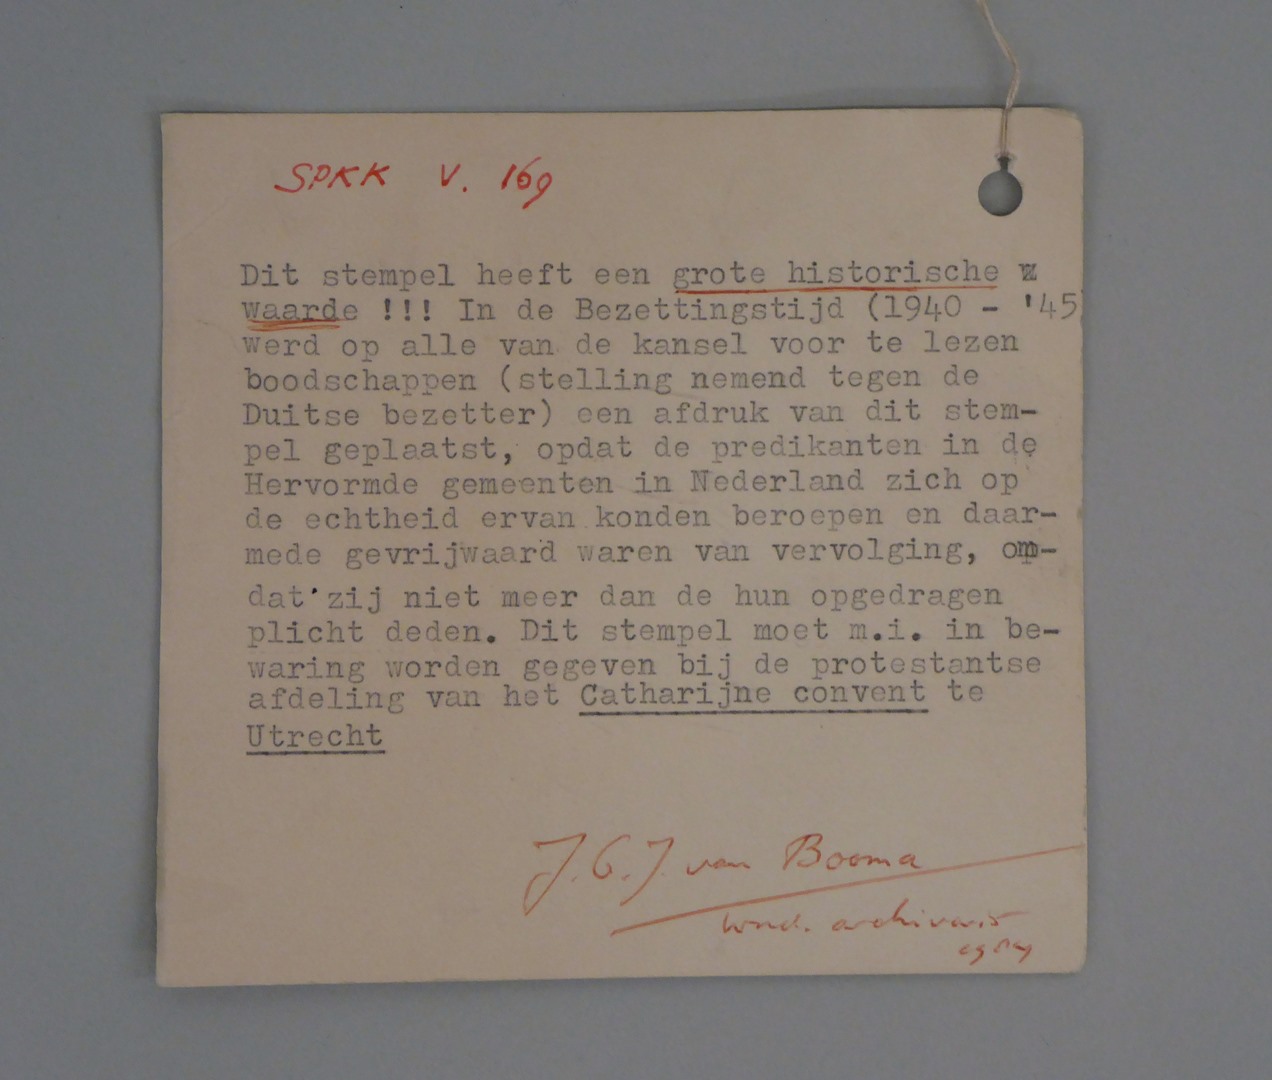 SPKK V. 169
Dit stempel heeft een grote historische z
waarde !!! In de Bezettingstijd (1940 - '45)
werd op alle van de kansel voor te lezen
boodschappen (stelling nemend tegen de
Duitse bezetter) een afdruk van dit stem-
pel geplaatst, opdat de predikanten in de
Hervormde gemeenten in Nederland zich op
de echtheid ervan konden beroepen en daar-
mede gevrijwaard waren van vervolging, om-
dat zij niet meer dan de hun opgedragen
plicht deden. Dit stempel moet m.i. in be-
waring worden gegeven bij de protestantse
afdeling van het Catharijne convent te
Utrecht
J.G.J. van Booma
wnd. archivaris